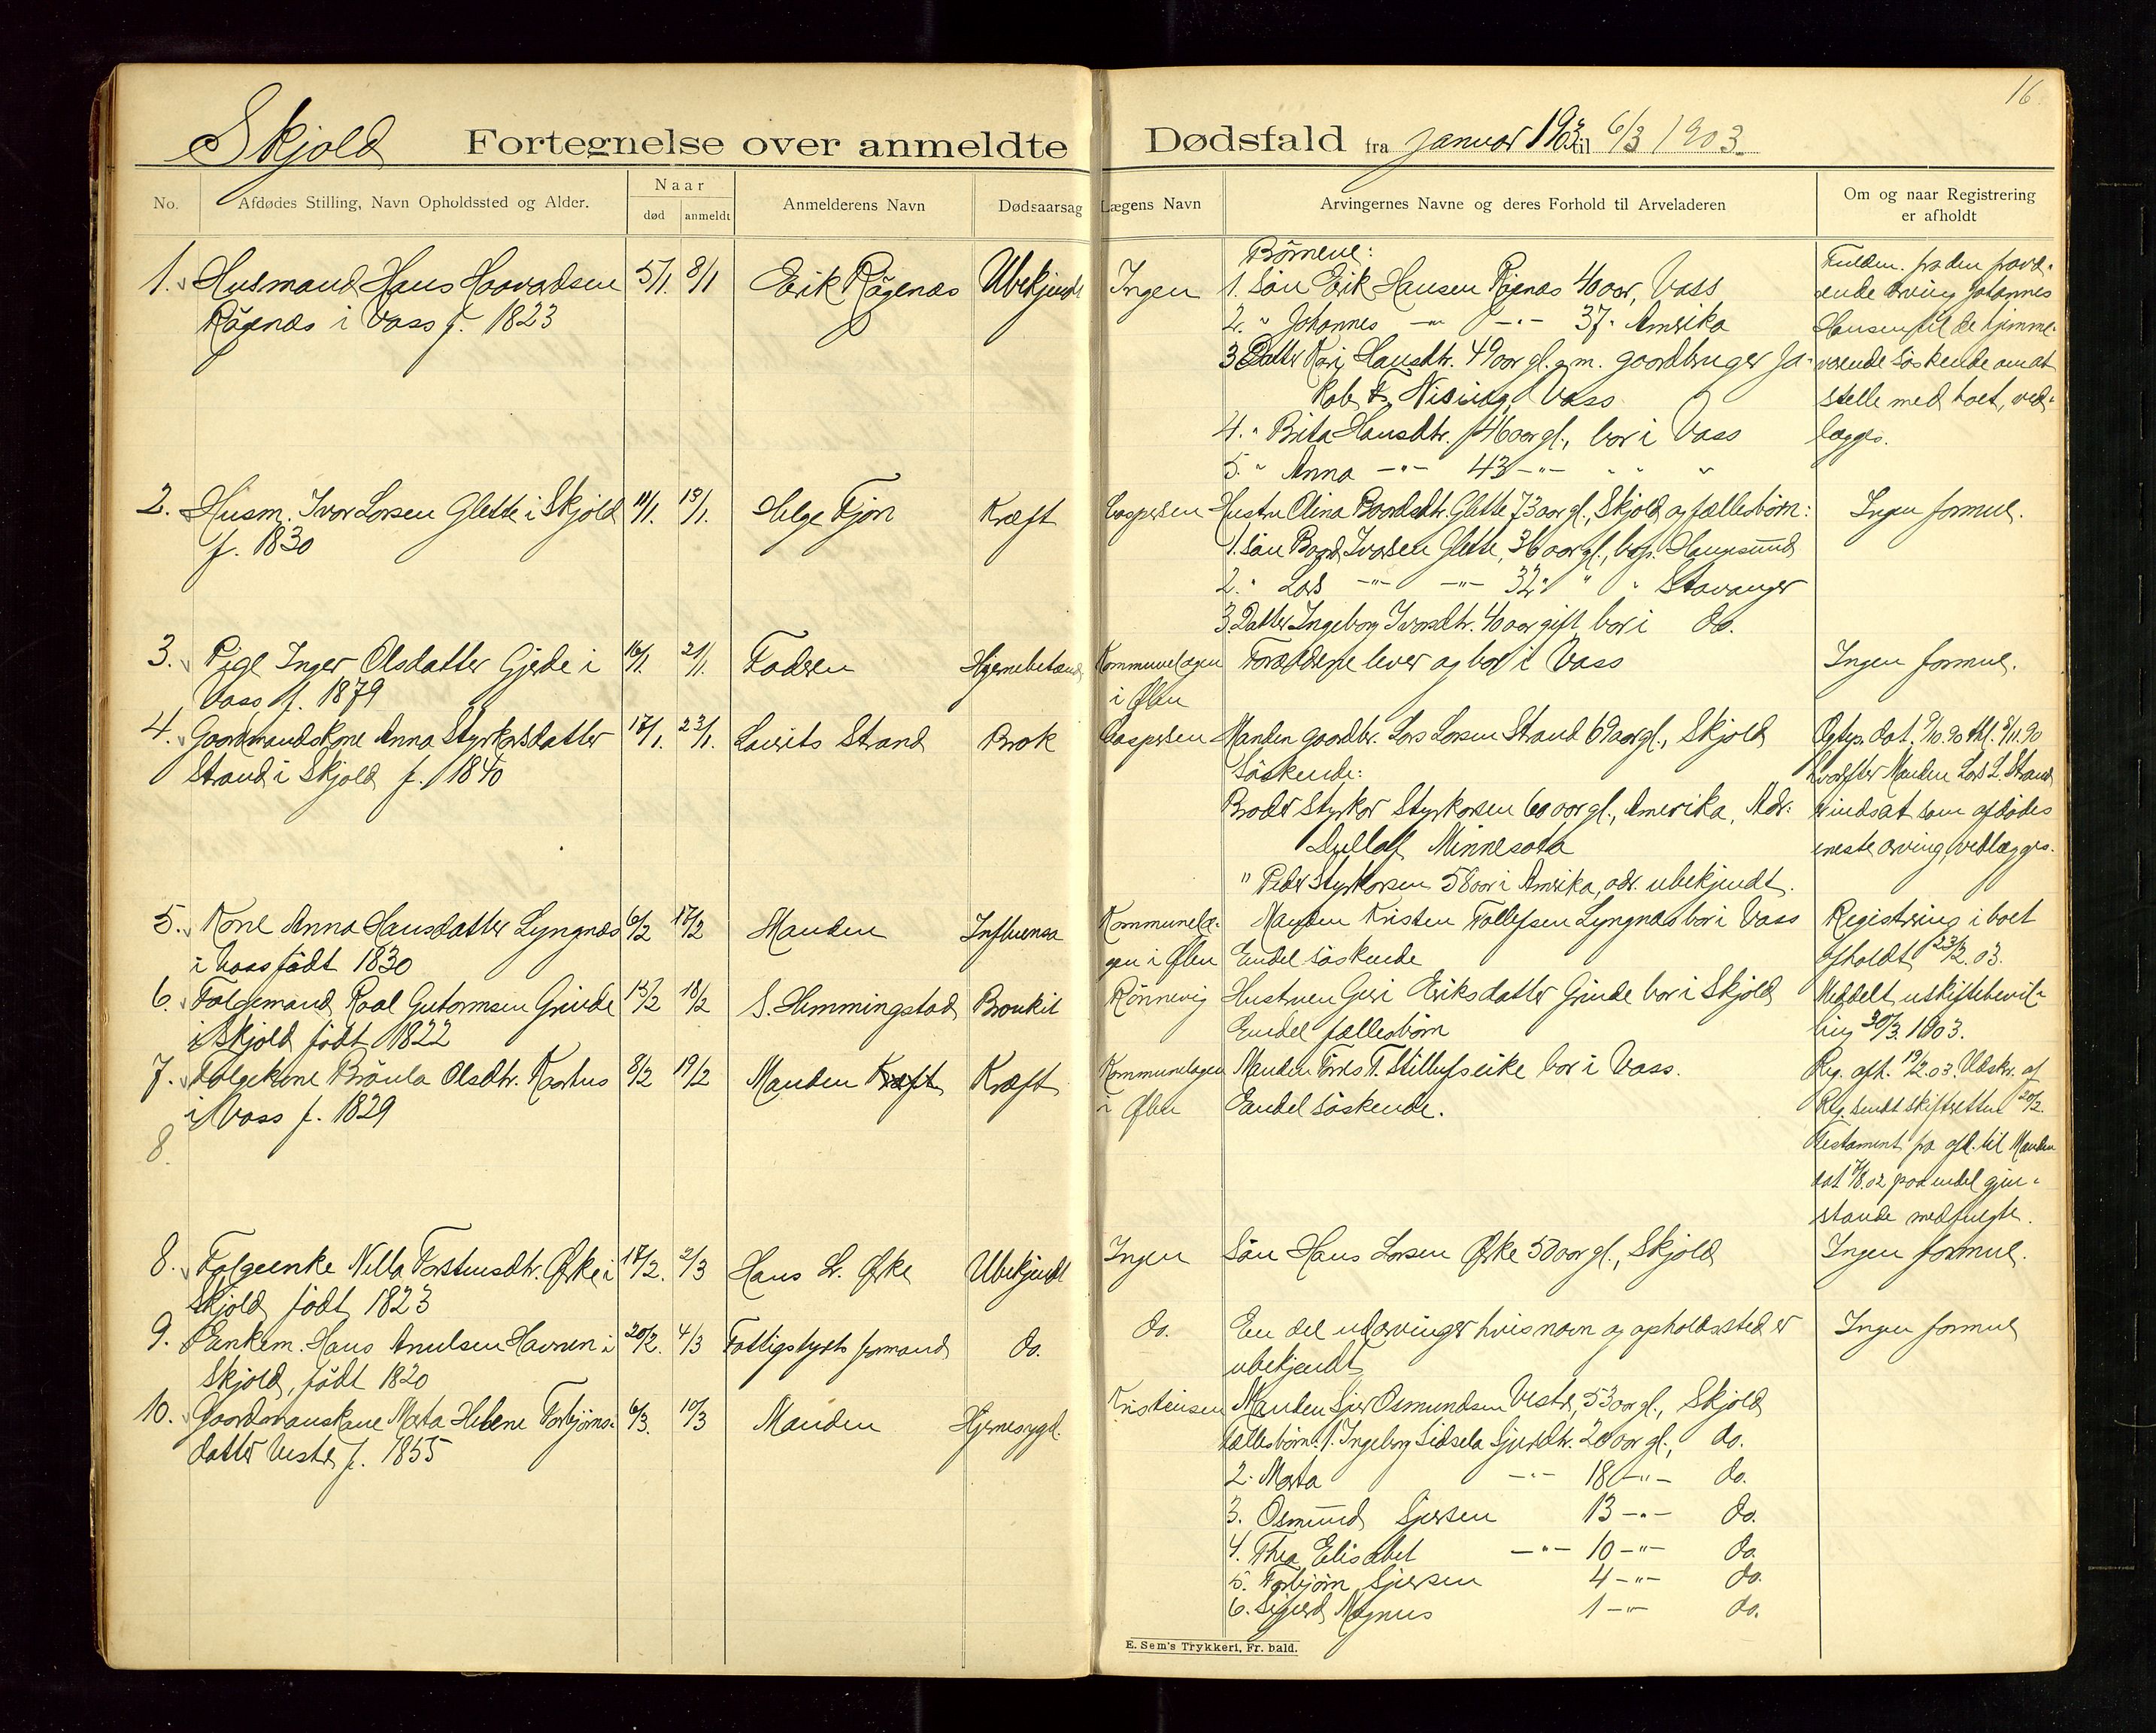 16
Skjold Fortegnelse over anmeldte Dødsfald fra Januar 1903 til 6/3 1903
No.
Afdødes Stilling, Navn Opholdssted og Alder.
Naar
død
anmeldt
Anmelderens Navn
Dødsaarsag
Lægens Navn
Arvingernes Navne og deres Forhold til Arveladeren
Om og naar Registrering
er afholdt
1. Husmand Hans Haavardsen
Rågenæs i Vass f. 1823
5/1. 8/1
Erik Rågenæs
Ubekjendt
Ingen
Børnene:
1. Søn Erik Hansen Rågenæs 40 aar, Vass
2. " Johannes -"- -"- 37 " Amerika
3. Datter Kari Hansdtr. 49 aar gl. g. m. gaardbruger Ja-
kob Vass
4. " Brita Hansdtr. 46 aar gl., bor i Vass
5. " Anna -"- 43 -"- " " "
Fuldm. fra den fravæ-
ende arving Johannes
Hansen til de hjemme-
værende søskende om at
stelle med boet, ved-
lægges.
2. Husm. Ivar Larsen Glette i Skjold
f. 1830
11/1. 13/1.
Helge Fjon
Kræft
Caspersen
Hustru Elina Baardsdtr. Glette 73 aar gl., Skjold og fællesbørn:
1. Søn Baard Ivarsen Glette, 36 aar gl., bop. Haugesund
2. " Lars -"- -"- 32 " " " Stavanger
3. Datter Ingeborg Ivarsdtr. 40 aar gift bor i do.
Ingen formue.
3. Pige Inger Olsdatter Gjerde i
Vass f. 1879
16/1. 21/1.
Faderen
Hjernebetænd
Kommunelægen
i Ølen
Forældrene lever og bor i Vass
Ingen formue.
4. Gaardmandskone Anna Styrkorsdatter
Strand i Skjold f. 1840
17/1. 23/1.
Laurits Strand
Brok
Caspersen
Manden gaardbr. Lars Larsen Strand 69 aar gl., Skjold
Søskende:
Broder Styrkor Styrkorsen 60 aar gl., Amerika, Adr:
Minnesota
" Peder Styrkorsen 58 aar i Amerika, adr. ubekjendt.
hvorefter Manden Lars L. Strand
er indsat som afdødes
eneste arving, vedlægges.
5. Kone Anna Hansdatter Lyngnæs
i Vass født 1830
6/2 17/2
Manden
Influensa
Kommunelæ-
gen i Ølen
Manden Kristen Tollefsen Lyngnæs bor i Vass
Endel søskende
Registrering i boet
afholdt 23/2. 03.
6. Folgemand Roal Gutormsen Grinde
i Skjold født 1822
13/2 18/2
S. Hemmingstad
Bronkit
Rønnevig
Hustruen Guri Eriksdatter Grinde bor i Skjold
Endel fællesbørn
Meddelt uskiftebevil-
ling 30/3. 1903.
7. Folgekone Brønla Olsdtr. Kaarhus
i Vass f. 1829
8/2 19/2
Manden Kræft
Kræft
Kommunelægen
i Ølen
Manden Tørres T. Stillufseike bor i Vass.
Endel søskende.
Reg. afh. 19/2. 03. Udskr. af
Reg. sendt skifteretten 20/2.
Testament fra afd. til Manden
dat 7/8.02 paa endel gjen-
stande medfulgte.
8
8. Folgeenke Nilla Torstensdtr. Ørke i
Skjold født 1823
17/2. 2/3
Hans L. Ørke
Ubekjendt
Ingen
Søn Hans Larsen Ørke 50 aar gl., Skjold
Ingen formue.
9. Enkem. Hans Amelsen Havnen i
Skjold, født 1820
20/2. 4/3
Fattigstyrets formand
do.
do.
En del udarvinger hvis navn og opholdssted er
ubekjendt
Ingen formue
10. Gaardmanskone Marta Helene Torbjørns-
datter Vestre f. 1855
6/3. 10/3
Manden
Hjernesygd.
Kristensen
Manden Sjur Osmundsen Vestre, 53 aar gl., Skjold
Fællesbørn: 1. Ingeborg Sidsela Sjursdtr. 20 aar gl., do.
2. Marta -"- 18 -"- do.
3. Osmund Sjursen 13 -"- do.
4. Thea Elisabet -"- 10 -"- do.
5. Torbjørn Sjursen 4 -"- do.
6. Sigurd Magnus 1 -"- do.
E. Sem's Trykkeri, Fr. hald.